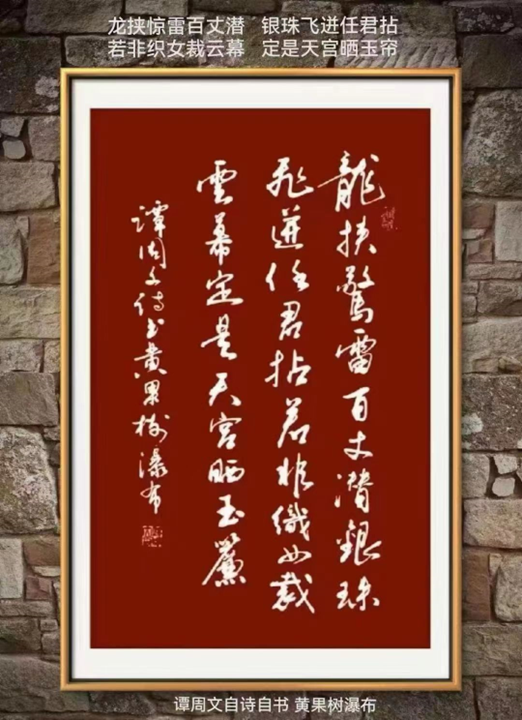 龙挟惊雷百丈潜 银珠飞迸任君拈
若非织女裁云幕 定是天宫晒玉帘
龍挟驚雷百丈潜銀珠
飛迸任君拈若非織女裁
雲幕定是天宮晒玉簾
譚周文詩书黄果树瀑布
谭周文自诗自书 黄果树瀑布